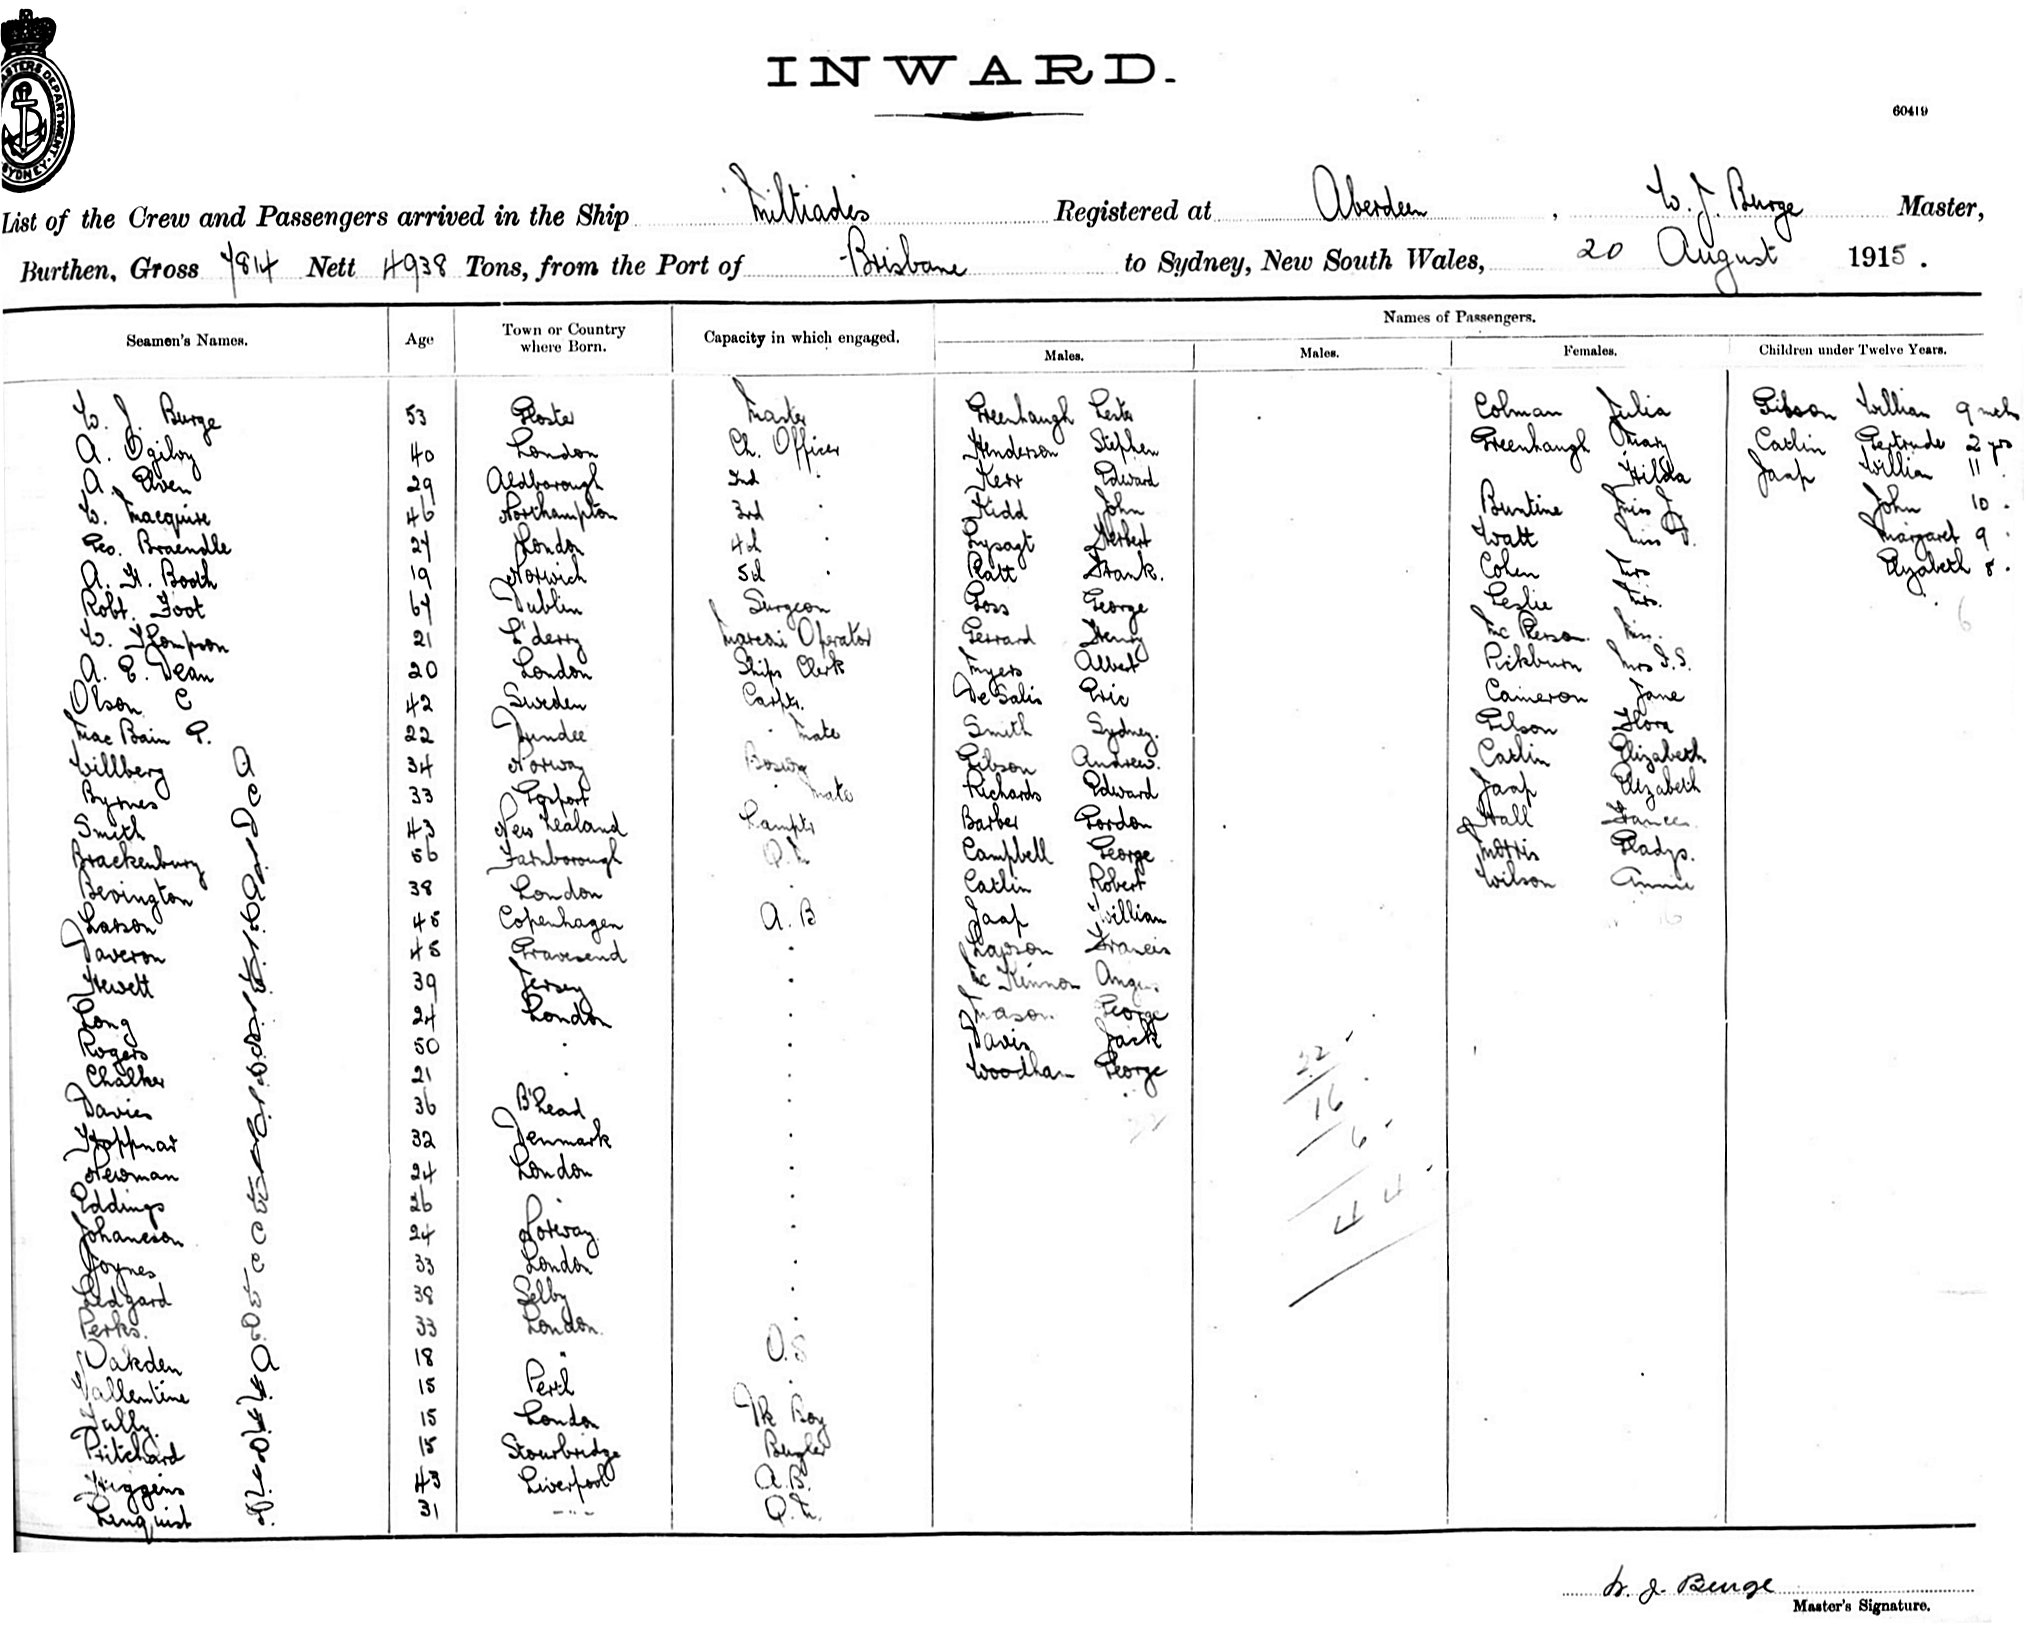 INWARD.
60419
List of the Crew and Passengers arrived in the Ship Miltiades Registered at Aberdeen, W. J. Burge Master,
Burthen, Gross 7814 Nett 4938 Tons, from the Port of Brisbane to Sydney, New South Wales, 20 August 1915.
Names of Passengers.
Seamen's Names. Age Town or Country where Born. Capacity in which engaged. Males. Males. Females. Children under Twelve Years.
W. J. Burge 53 Master Greenhaugh Colman Julia Gibson William 9 mths
A. Ogilvy 40 London Ch. Officer Henderson Stephen Greenhaugh Mary Catlin Gertrude 2 yrs
A. Elven 29 Aldborough 2nd Kerr Edward Hilda Jaap William 11
W. Macquire 46 Northampton 3rd Kidd John Buntine Miss J. John 10
Geo. Braendle 27 London 4th Lysagt Herbert Watt Miss D. Margaret 9
A. H. Booth 19 Norwich 5th Platt Frank. Cohen Mrs Elizabeth 8
Robt. Foot 67 Dublin Surgeon Ross George Leslie Mrs. 6
W. Thompson 21 L'derry Marconi Operator Gerrard Henry McPherson Miss.
A. E. Dean 20 London Ships Clerk Myers Albert Pickburn Mrs J. S.
Olson C 42 Sweden Carptr. De Salis Eric Cameron Jane
MacBain G. 22 Dundee " Mate Smith Sydney. Gibson Flora
Willberg 34 Norway Bosun Gibson Andrew. Catlin Elizabeth
Byrnes 33 Gosport " Mate Richards Edward Jaap Elizabeth
Smith 43 New Zealand Lamptr Barber Gordon Hall Frances
Brackenbury 56 Farnborough Q.M. Campbell George Morris Gladys.
Bevington 38 London Catlin Robert Wilson Annie
Larson 45 Copenhagen A.B Jaap William 16
Daveron 45 Gravesend Francis
Hewett 39 Jersey McKinnon Angus
Long 24 London Mason George
Rogers 50 " Davis Jack
Chalker 21 " Woodham George
Davies 36 B'head 22
32 Denmark
Newman 24 London
Eddings 26 "
Johaneson 24 Norway
Joynes 33 London
Ledgard 38 Selby
Perks. 33 London.
Oakden 18 " O.S
Vallentine 15 Perth
Tully. 15 London Dk Boy
Pritchard 15 Stourbridge Bugler
Higgins 43 Liverpool A.B.
Linquist 31 Q.M.
22
16
6
44
W. J. Burge
Master's Signature.